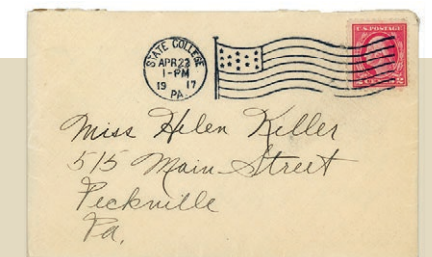 STATE COLLEGE
APR 23
1-PM
19 17
PA.
U.S. POSTAGE
CENTS 2
Miss Helen Killer
515 Main Street
Peckville
Pa.